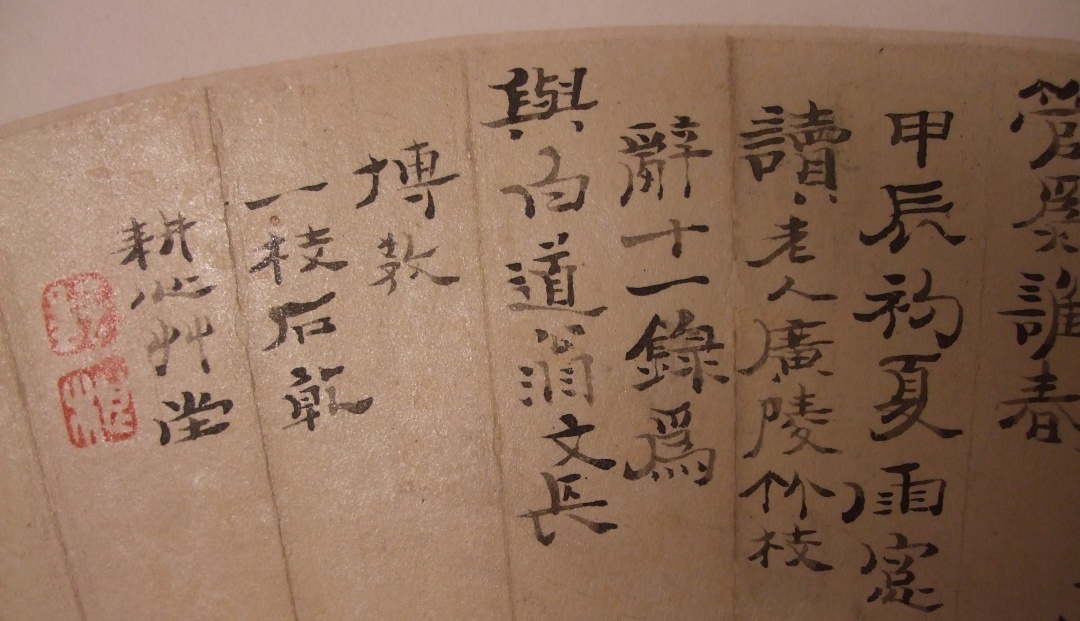 管爲誰春
甲辰初夏雨窗
讀老人廣陵竹枝
辭十一錄爲
與白道翁文長
博教
一枝石乾
耕心艸堂